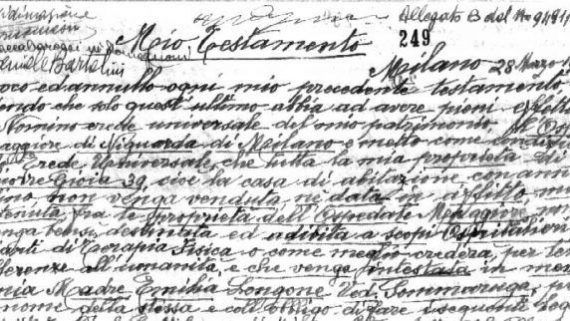 Allegato B del N° 9491
249
Mio Testamento
Bartolini
Milano 28 Marzo
oco ed annullo ogni mio precedente testamento
endo che solo quest'ultimo abbia ad avere pieni effetti
Nomino erede universale del mio patrimonio, l'Osp
aggiore di Niguarda di Milano e metto come condizi
Erede Universale, che tutta la mia proprietà di
Gioia 39, cioè la casa di abitazione con anni
non venga venduta, nè data in affitto, m
enuta fra le proprietà dell'Ospedale Maggiore
nga bensì destinata ed adibita a scopi Ospitalieri
di Terapia Fisica o come meglio crederà, per
ferenze all'umanità, e che venga intestata in mem
mia Madre Emilia Longone Ved. Sommaruga, p
nome della stessa e coll'obbligo di fare i seguenti